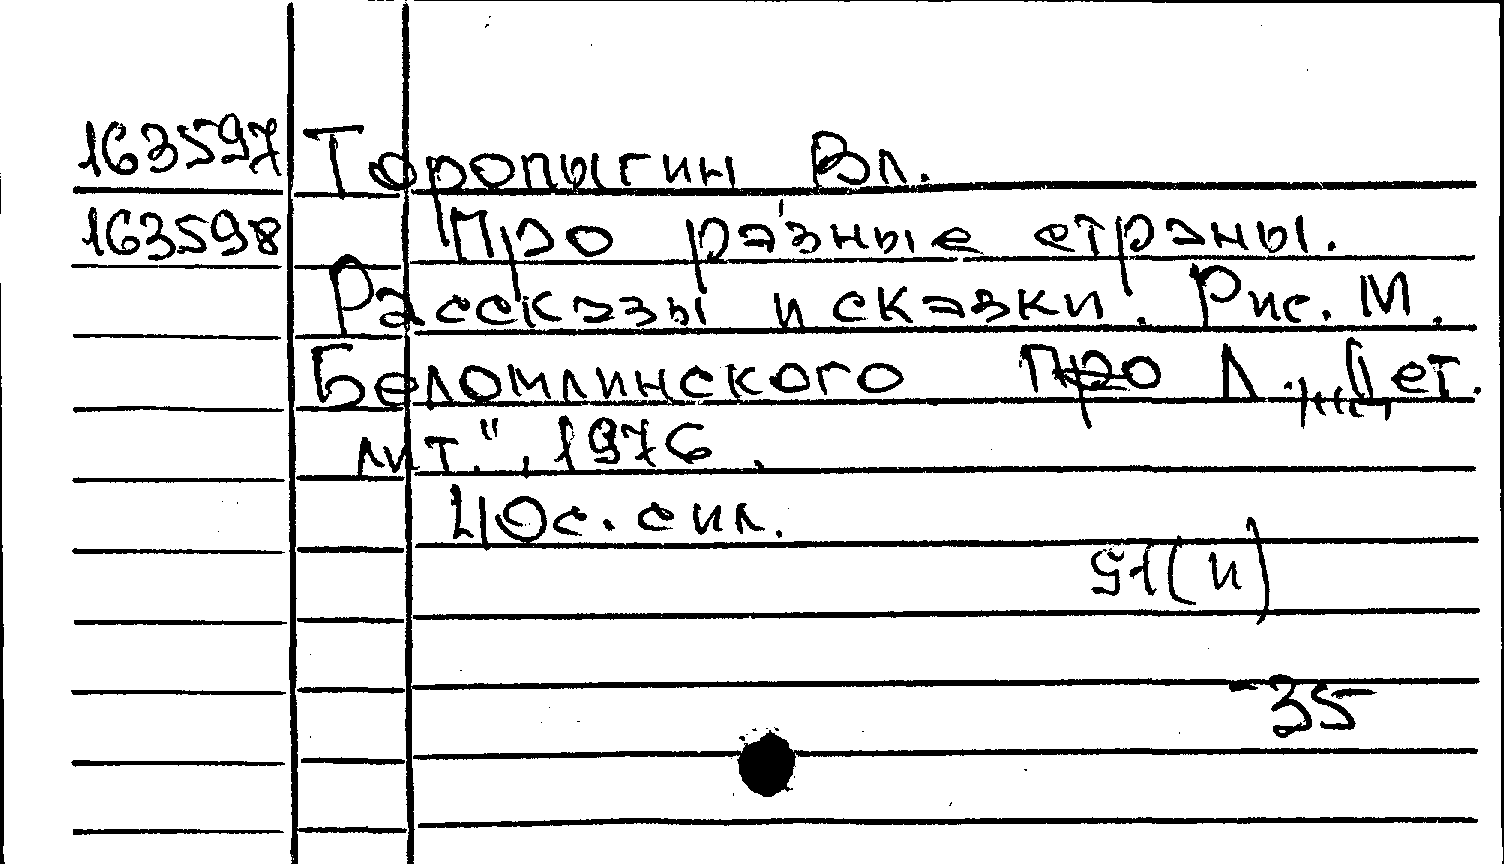 163597 Торопыгин Вл.
163598 Про разные страны.
Рассказы и сказки. Рис. М.
Беломлинского Л., Дет.
лит.", 1976.
40с. с ил.
91(и)
-35